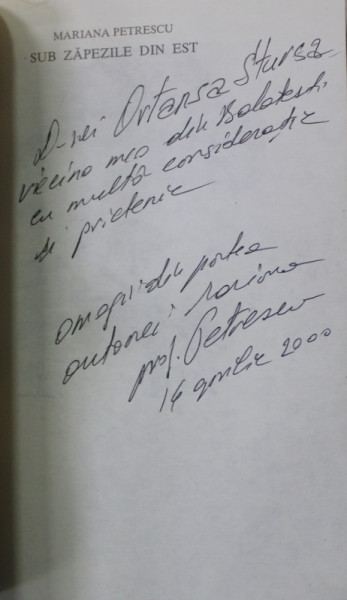 MARIANA PETRESCU
SUB ZĂPEZILE DIN EST
D-nei Ortansa Sturza
vecina mea din Balotești
cu multă considerație
și prietenie
omagii din partea
autoarei Mariana
prof. Petrescu
14 aprilie 2000